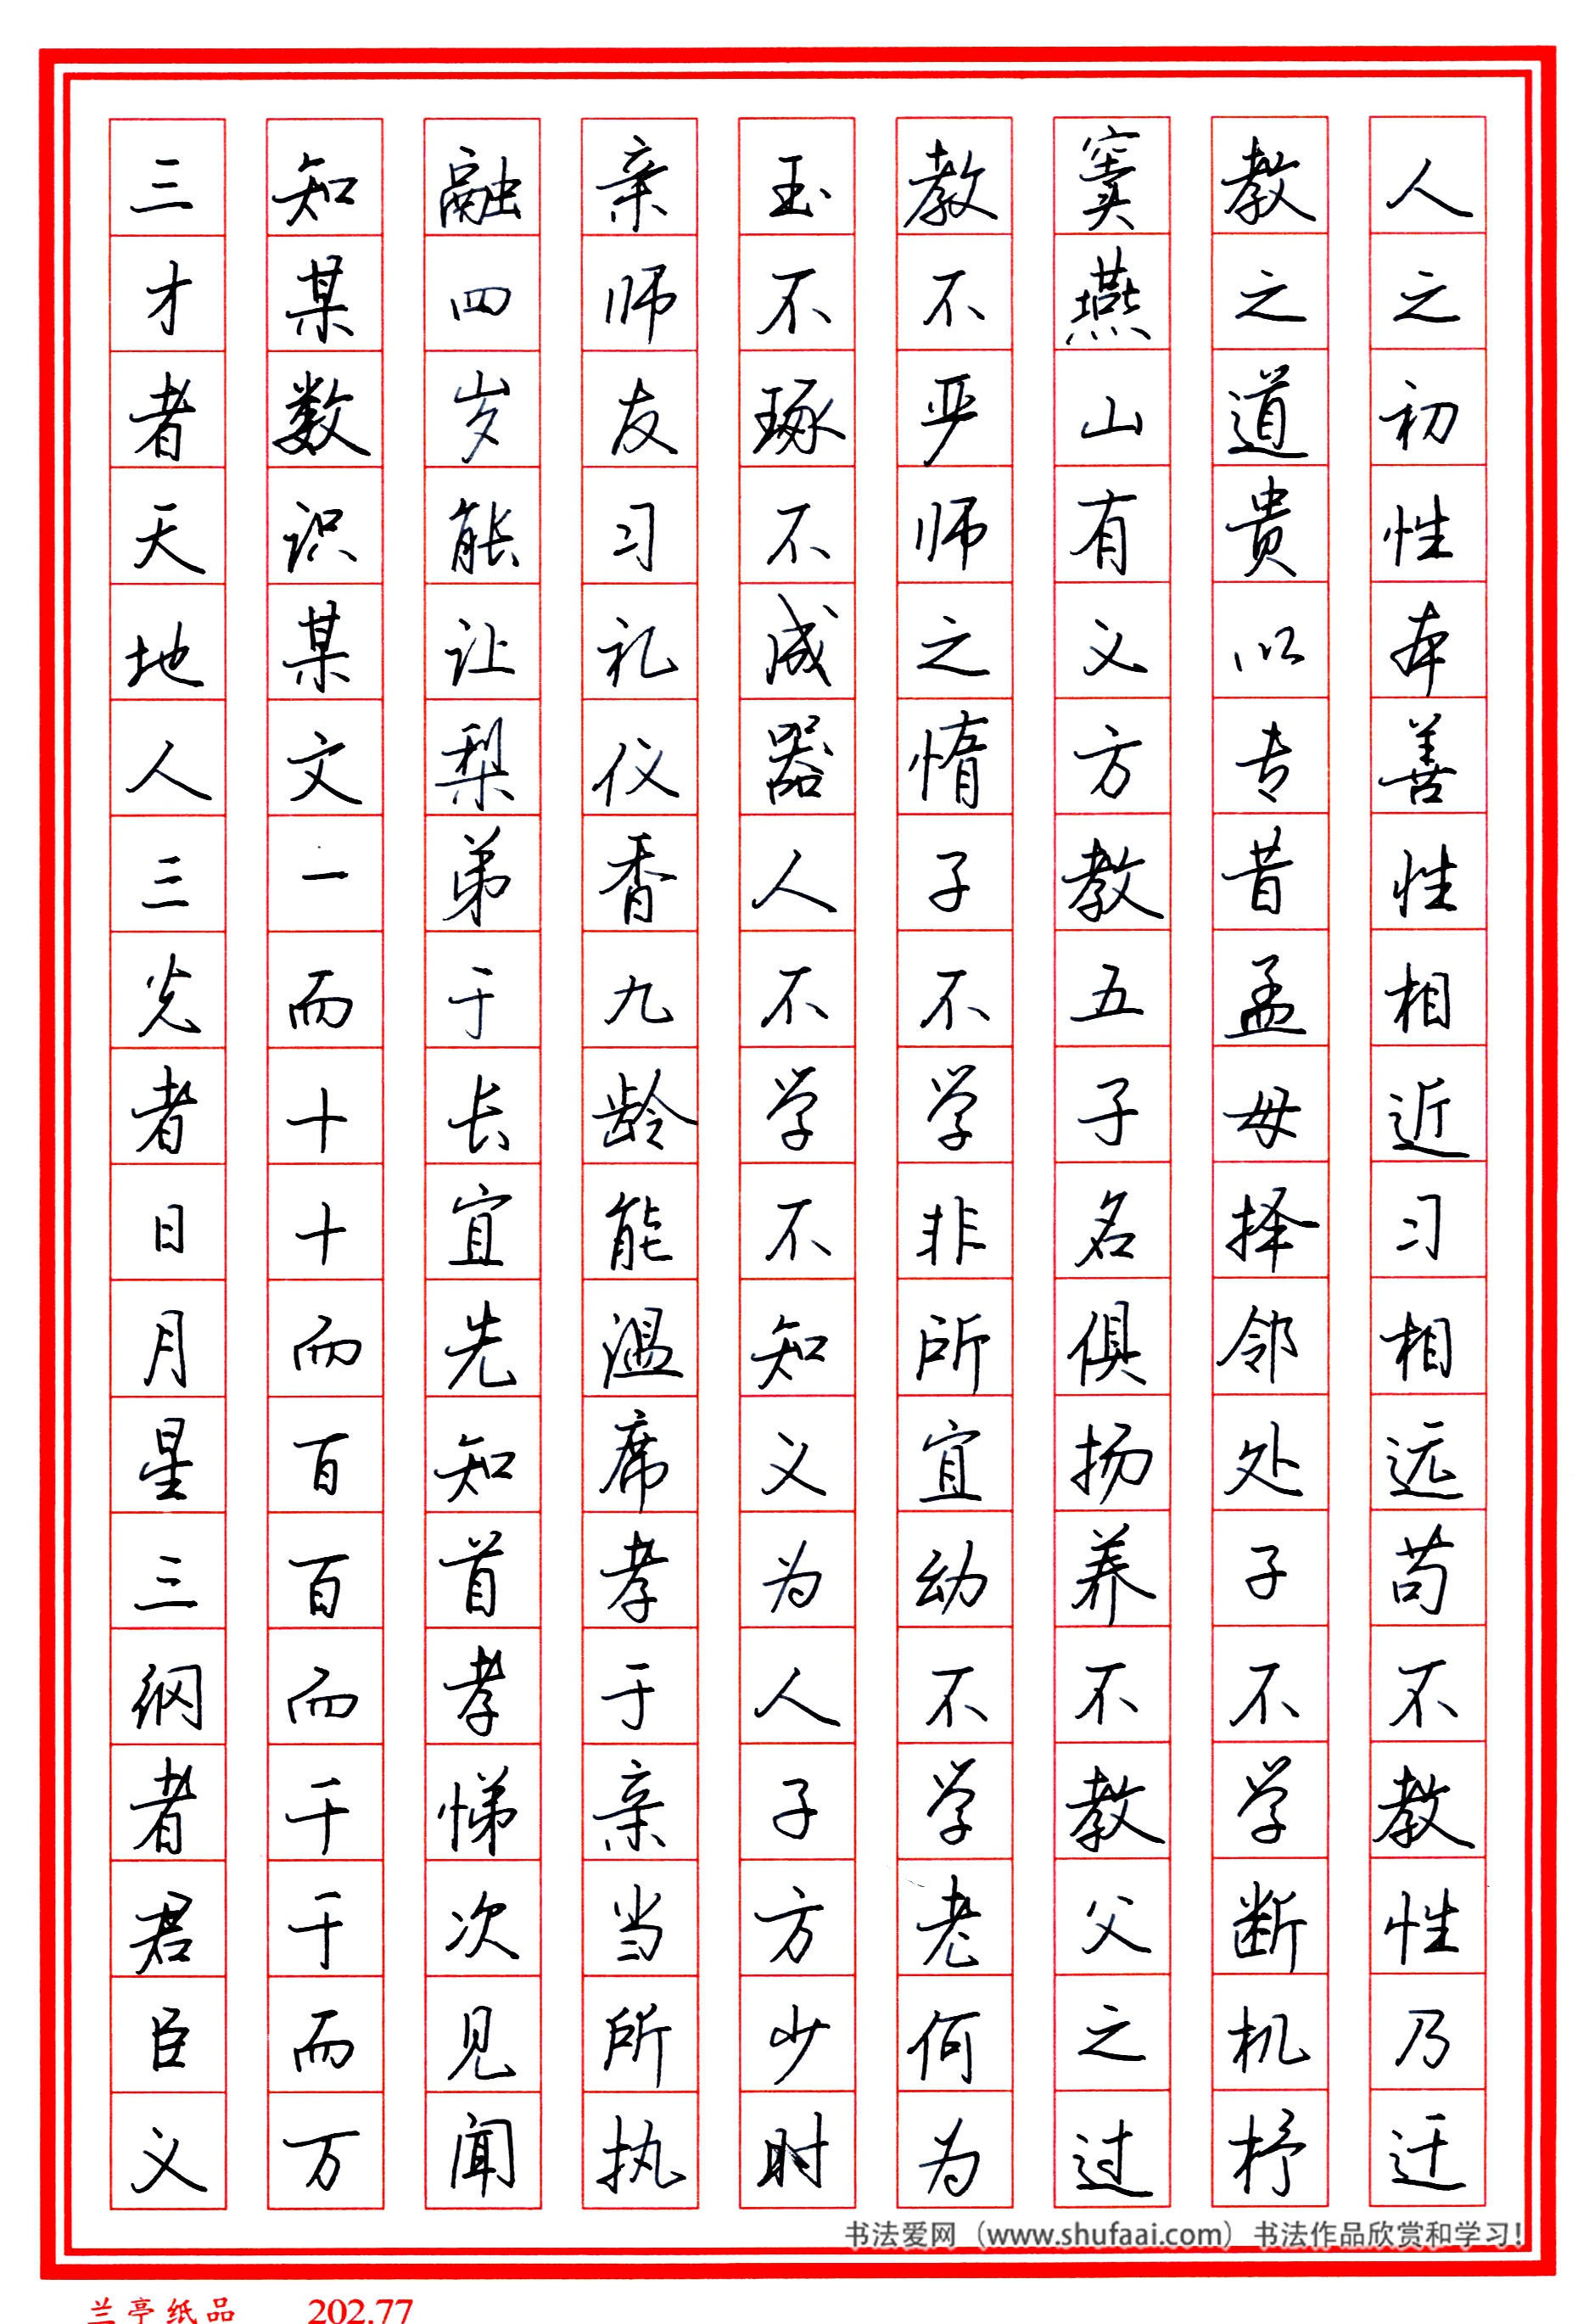 人之初性本善性相近习相远苟不教性乃迁
教之道贵以专昔孟母择邻处子不学断机杼
窦燕山有义方教五子名俱扬养不教父之过
教不严师之惰子不学非所宜幼不学老何为
玉不琢不成器人不学不知义为人子方少时
亲师友习礼仪香九龄能温席孝于亲当所执
融四岁能让梨弟于长宜先知首孝悌次见闻
知某数识某文一而十十而百百而千千而万
三才者天地人三光者日月星三纲者君臣义
书法爱网（www.shufaai.com）书法作品欣赏和学习！
兰亭纸品 202.77